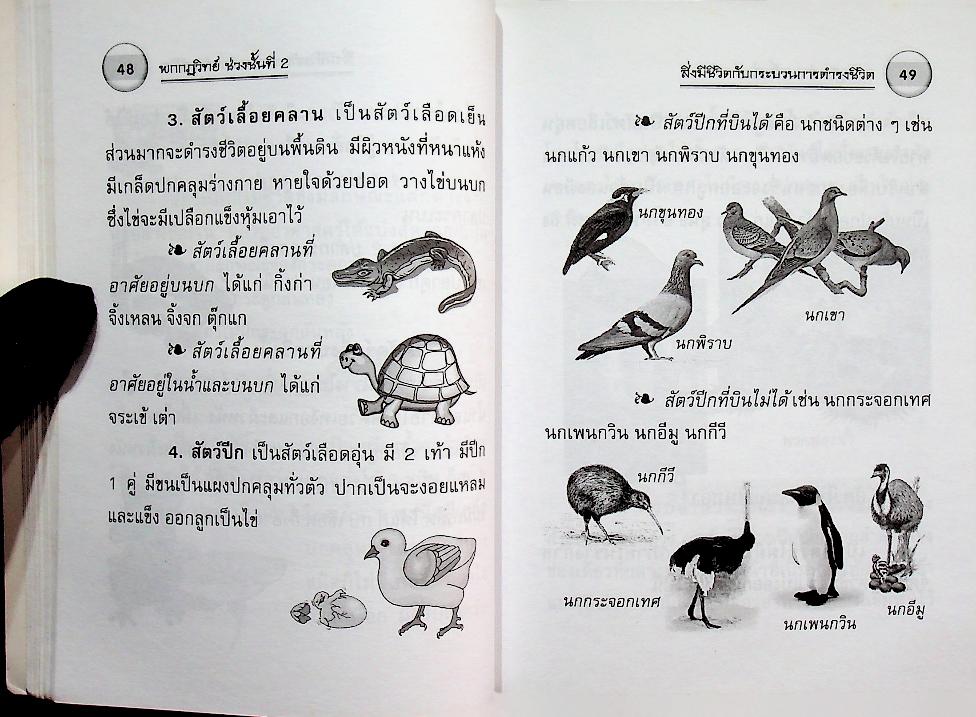 48
พกกฎวิทย์ ช่วงชั้นที่ 2
3. สัตว์เลื้อยคลาน เป็นสัตว์เลือดเย็น
ส่วนมากจะดำรงชีวิตอยู่บนพื้นดิน มีผิวหนังที่หนาแห้ง
มีเกล็ดปกคลุมร่างกาย หายใจด้วยปอด วางไข่บนบก
ซึ่งไข่จะมีเปลือกแข็งหุ้มเอาไว้
สัตว์เลื้อยคลานที่
อาศัยอยู่บนบก ได้แก่ กิ้งก่า
จิ้งเหลน จิ้งจก ตุ๊กแก
สัตว์เลื้อยคลานที่
อาศัยอยู่ในน้ำและบนบก ได้แก่
จระเข้ เต่า
4. สัตว์ปีก เป็นสัตว์เลือดอุ่น มี 2 เท้า มีปีก
1 คู่ มีขนเป็นแผงปกคลุมทั่วตัว ปากเป็นจะงอยแหลม
และแข็ง ออกลูกเป็นไข่
สิ่งมีชีวิตกับกระบวนการดำรงชีวิต
49
สัตว์ปีกที่บินได้ คือ นกชนิดต่าง ๆ เช่น
นกแก้ว นกเขา นกพิราบ นกขุนทอง
นกขุนทอง
นกเขา
นกพิราบ
สัตว์ปีกที่บินไม่ได้ เช่น นกกระจอกเทศ
นกเพนกวิน นกอีมู นกกีวี
นกกีวี
นกกระจอกเทศ
นกเพนกวิน
นกอีมู